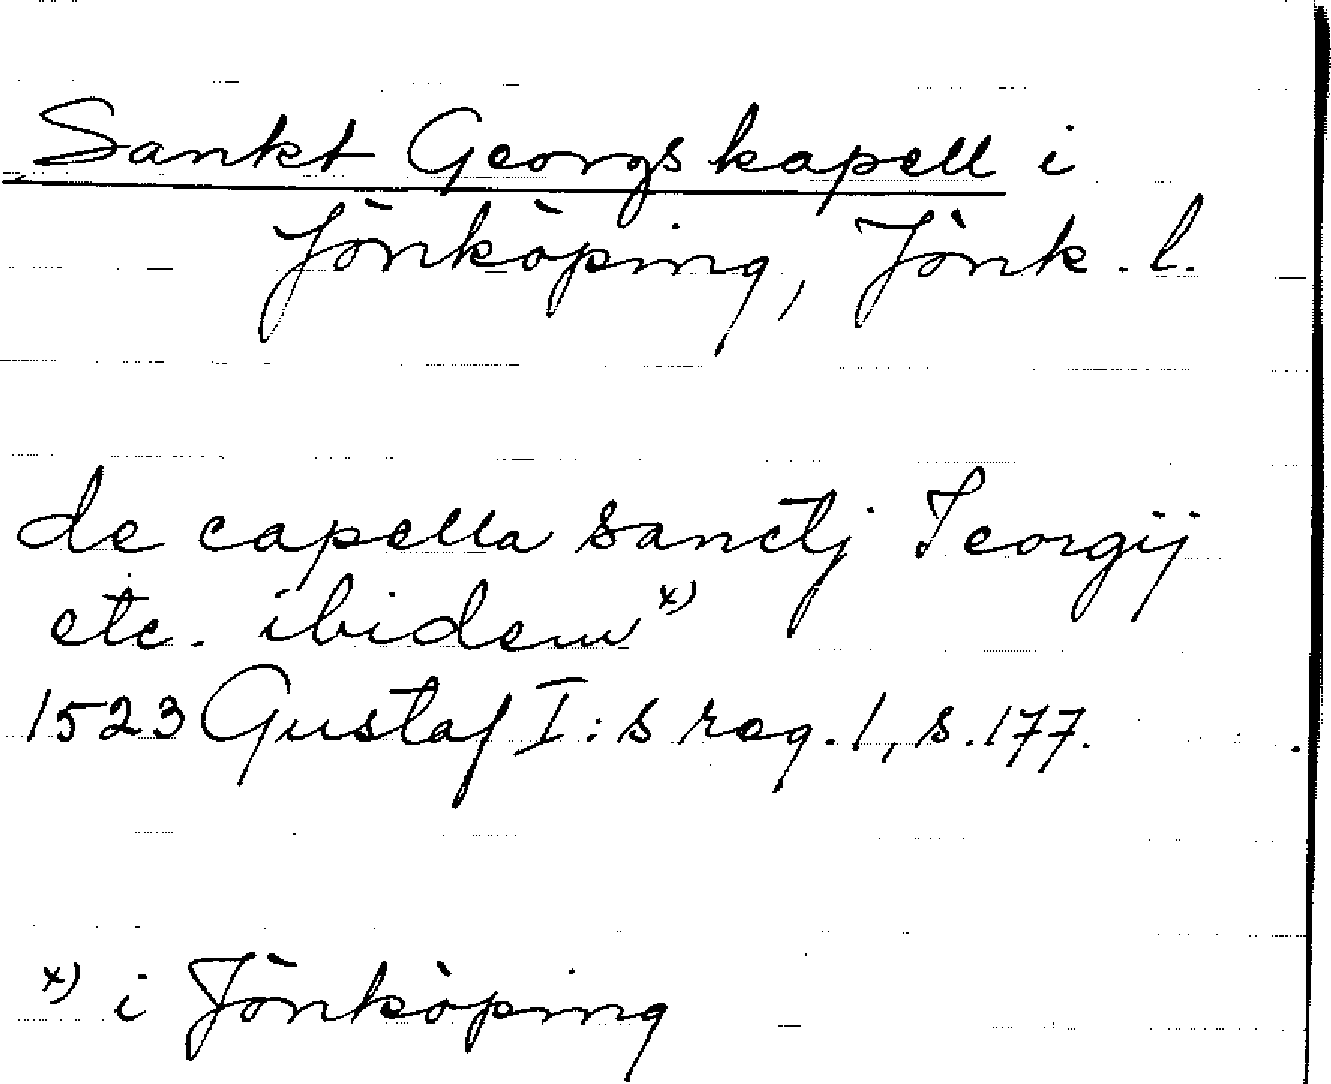 Sankt Georgs kapell i
Jönköping, Jönk. l.
de capella sanctj Jeorgij
etc. ibidem x)
1523 Gustaf I:s reg. 1, s. 177.
x) i Jönköping